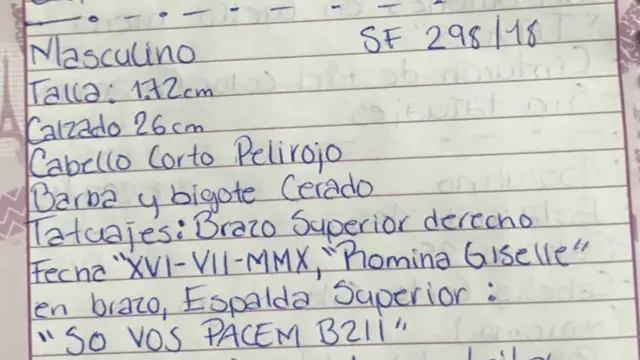 Masculino SF 298/18
Talla: 172cm
Calzado 26cm
Cabello Corto Pelirojo
Barba y bigote Cerado
Tatuajes: Brazo Superior derecho
Fecha "XVI-VII-MMX, "Romina Giselle"
en brazo, Espalda Superior:
"SO VOS PACEM B211"